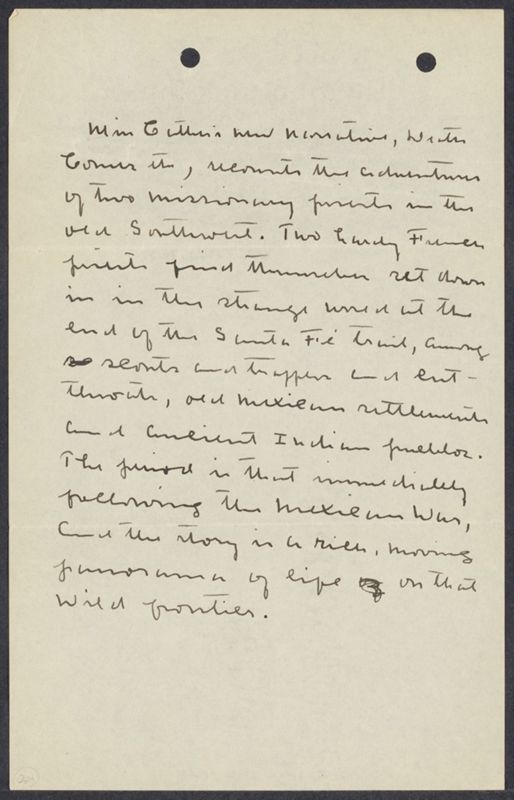 Miss Cather's new narrative, Death
Comes etc, recounts the adventures
of two missionary priests in the
old Southwest. Two hardy French
priests find themselves set down
in in the strange world at the
end of the Santa Fé trail, among
scouts and trappers and cut-
throats, old Mexican settlements
and ancient Indian pueblos.
The period is that immediately
following the Mexican War,
and the story is a rich, moving
panorama of life on that
wild frontier.